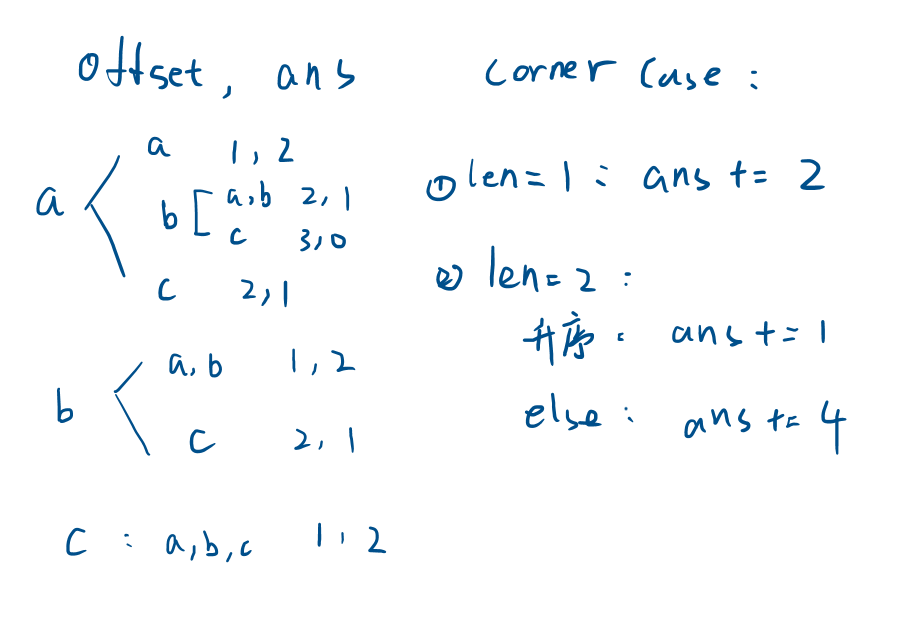 offset, ans
a
a 1, 2
b [ a,b 2, 1
c 3, 0
c 2, 1
b
a, b 1, 2
c 2, 1
c : a, b, c 1, 2
corner case :
① len = 1 : ans += 2
② len = 2 :
升序 : ans += 1
else : ans += 4